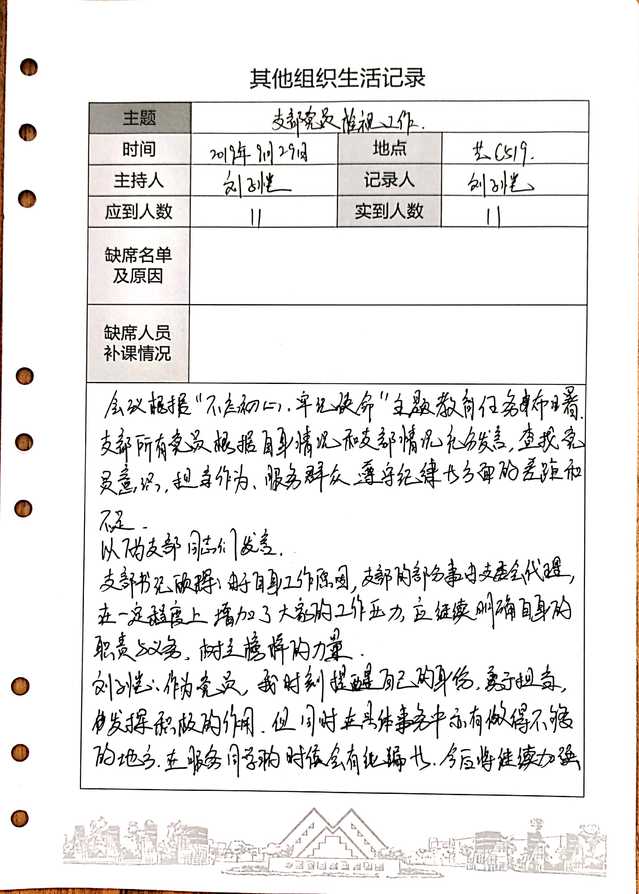 其他组织生活记录
主题 支部党员检视工作.
时间 2019年9月29日 地点 艺C519.
主持人 刘 记录人 刘
应到人数 11 实到人数 11
缺席名单
及原因
缺席人员
补课情况
会议根据“不忘初心、牢记使命”主题教育任务单部署.
支部所有党员根据自身情况和支部情况充分发言,查找党
员意识、担当作为、服务群众、遵守纪律等方面的差距和
不足.
以下为支部同志们发言.
支部书记:由于自身工作原因,支部的部分事由支委会代理,
在一定程度上增加了大家的工作压力,应继续明确自身的
职责与义务、树立榜样的力量.
刘:作为党员,我时刻提醒自己的身份.勇于担当,
发挥积极的作用.但同时在具体事务中亦有做得不够
的地方.在服务同学的时候会有纰漏等.今后将继续加强